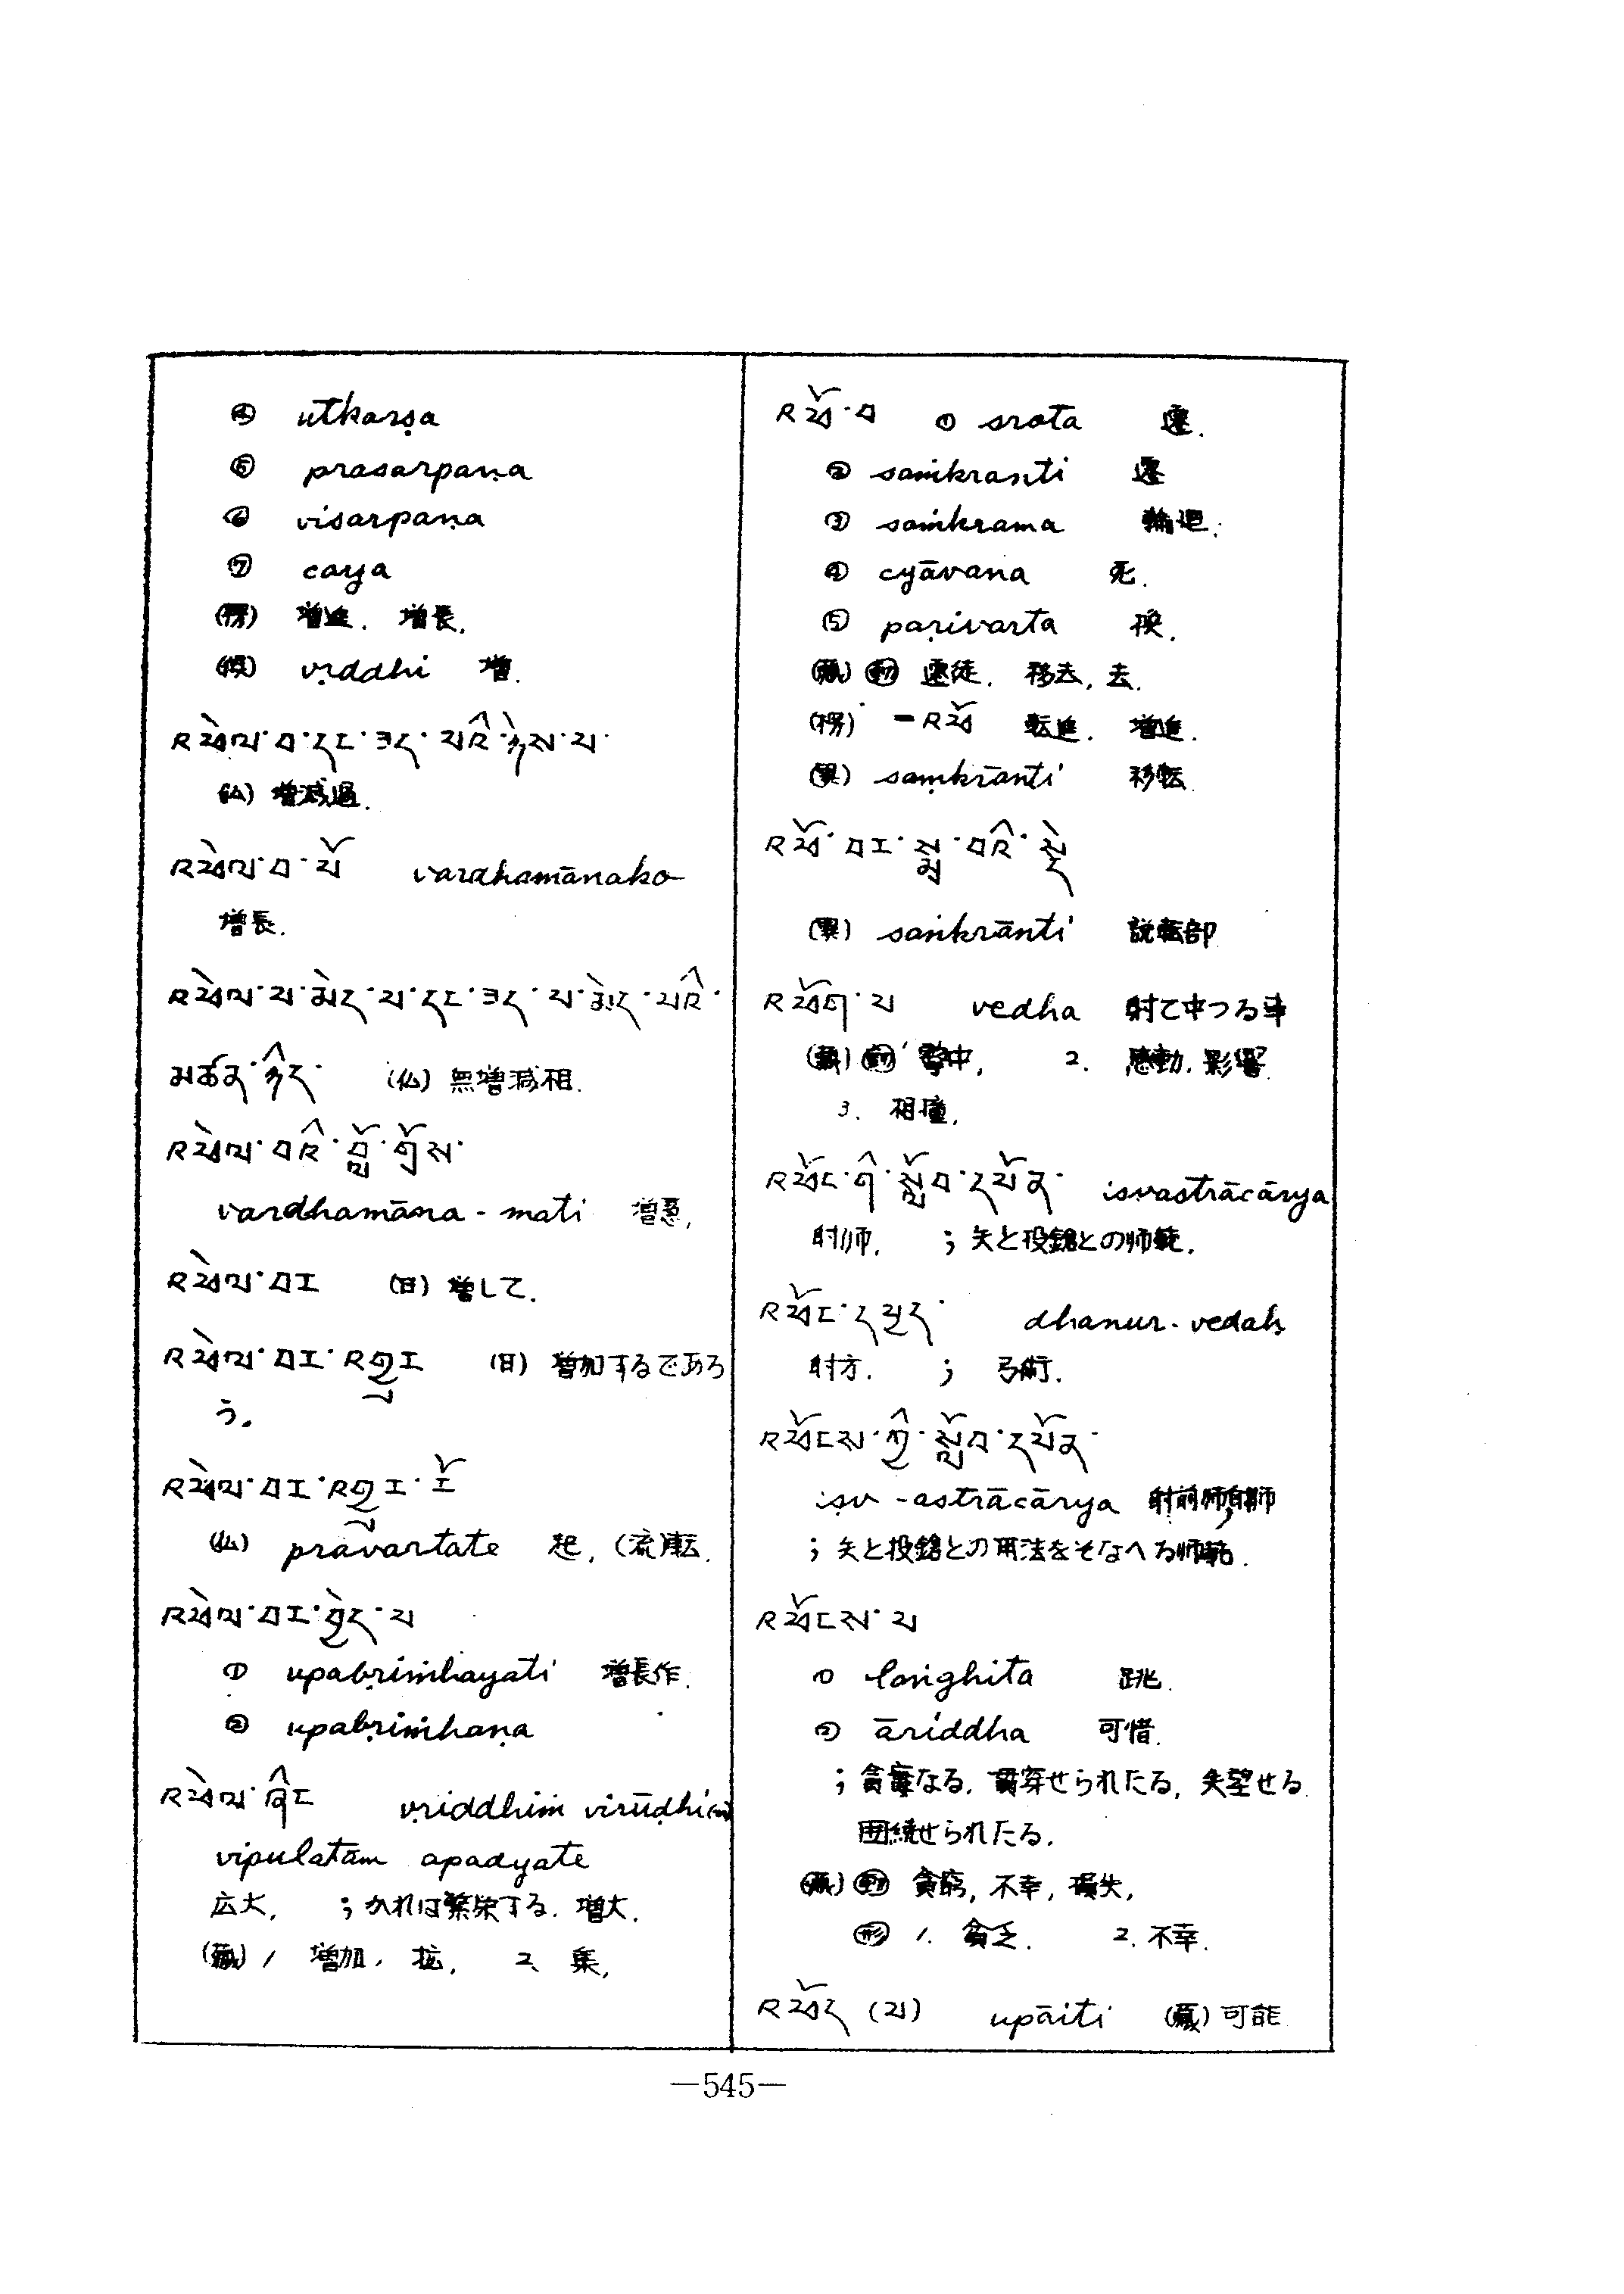 ④ utkarṣa
⑤ prasarpaṇa
⑥ visarpaṇa
⑦ caya
(楞) 増進. 増長.
(倶) vṛddhi 増.
འཕེལ་བ་དང་ཟད་པའི་ཉེས་པ་
(仏) 増減過.
འཕེལ་བ་པོ vardhamānako
増長.
འཕེལ་པ་མེད་པ་དང་ཟད་པ་མེད་པའི་
མཚན་ཉིད་ (仏) 無増減相.
འཕེལ་བའི་བློ་གྲོས་
vardhamāna - mati 増意.
འཕེལ་བར (日) 増して.
འཕེལ་བར་འགྱུར (日) 増加するであろ
う。
འཕེལ་བར་འགྱུར་རོ
(仏) pravartate 起, (流)転.
འཕེལ་བར་བྱེད་པ
① upabṛiṁhayati 増長作.
② upabṛiṁhaṇa
འཕེལ་ཞིང vṛiddhiṁ virūḍhi(ṁ)
vipulatām apadyate
広大. ; かれは繁栄する. 増大.
(蔵) 1 増加, 拡. 2. 集,
འཕོ་བ ① srota 遷.
② saṁkranti 遷
③ saṁkrama 輪廻.
④ cyāvana 死.
⑤ parivarta 換.
(蔵) 動 遷徒. 移去, 去.
(楞) －འཕོ 転進. 増進.
(異) saṃkrānti 移転
འཕོ་བར་སྨྲ་བའི་སྡེ
(異) saṅkrānti 説転部
འཕོག་པ vedha 射て中つる事
(蔵) 動 1 撃中, 2. 感動. 影響.
3. 相撞.
འཕོང་གི་སློབ་དཔོན་ isvastrācārya
射师. ; 矢と投鎗との师範.
འཕོང་དཔྱད་ dhanur - vedaḥ
射方. ; 弓術.
འཕོངས་ཀྱི་སློབ་དཔོན་
iṣv - astrācārya
; 矢と投鎗との用法をそなへる师範.
འཕོངས་པ
① laṅghita 跳.
② āriddha 可惜.
; 貪なる. 貫穿せられたる, 失望せる.
囲繞せられたる.
(蔵) 動 貧窮, 不幸, 損失,
形 1. 貧乏. 2. 不幸.
འཕོད (པ) upāiti (蔵) 可能
—545—